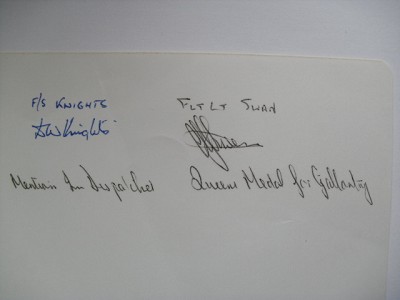 F/S KNIGHTS
DWKnights
FLT LT SWAN
Mention In Dispatches
Queens Medal for Gallantry